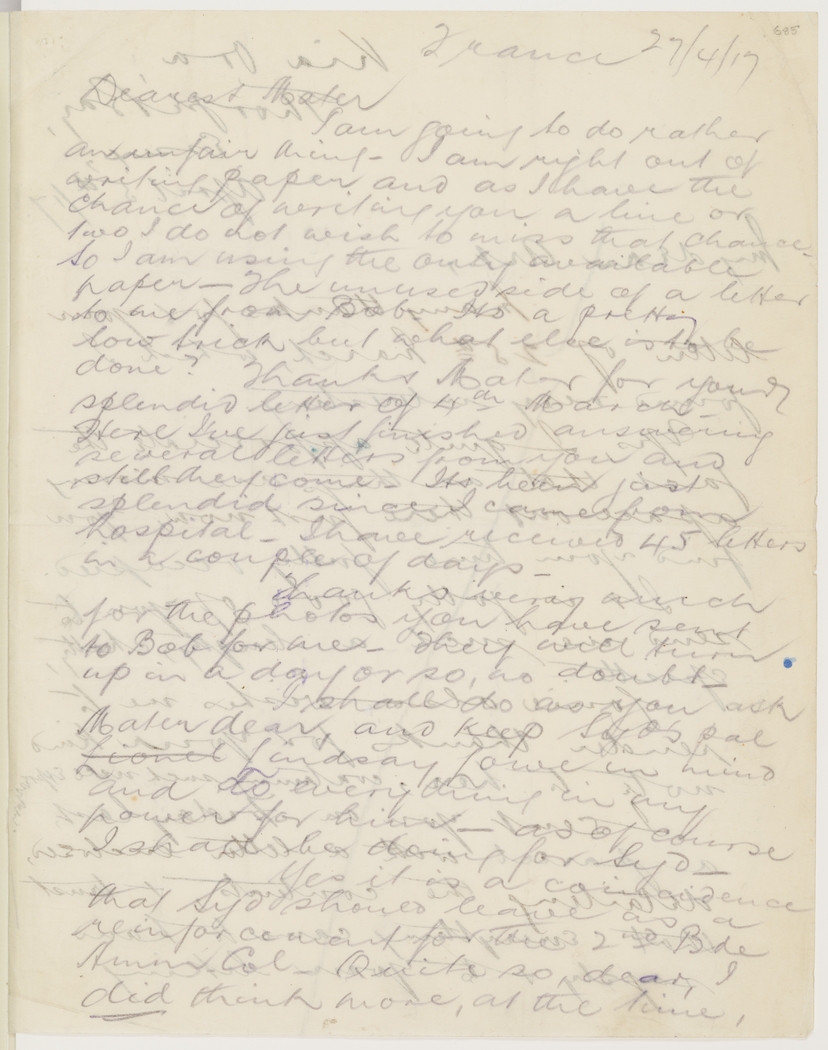 685
France 27/4/17
Dearest Mater
I am going to do rather
an unfair thing - I am right out of
writing paper and as I have the
chance of writing you a line or
two I do not wish to miss that chance -
So I am using the only available
paper - The unused side of a letter
to me from Bob. Its a pretty
low trick but what else is to be
done? Thanks Mater for your
splendid letter of 4th March -
Here I've just finished answering
several letters from you and
still they come - Its been just
splendid since I came from
hospital - I have received 45 letters
in a couple of days -
Thanks very much
for the photos you have sent
to Bob for me - They will turn
up in a day or so, no doubt -
I shall do as you ask
Mater dear, and keep Syd's pal
Lionel Lindsay in mind
and do everything in my
power for him - as of course
I shall be doing for Syd -
Yes it is a coincidence
that Syd should leave as a
reinforcement for the 2nd Bde
Amm. Col - Quite so, dear, I
did think more, at the time,